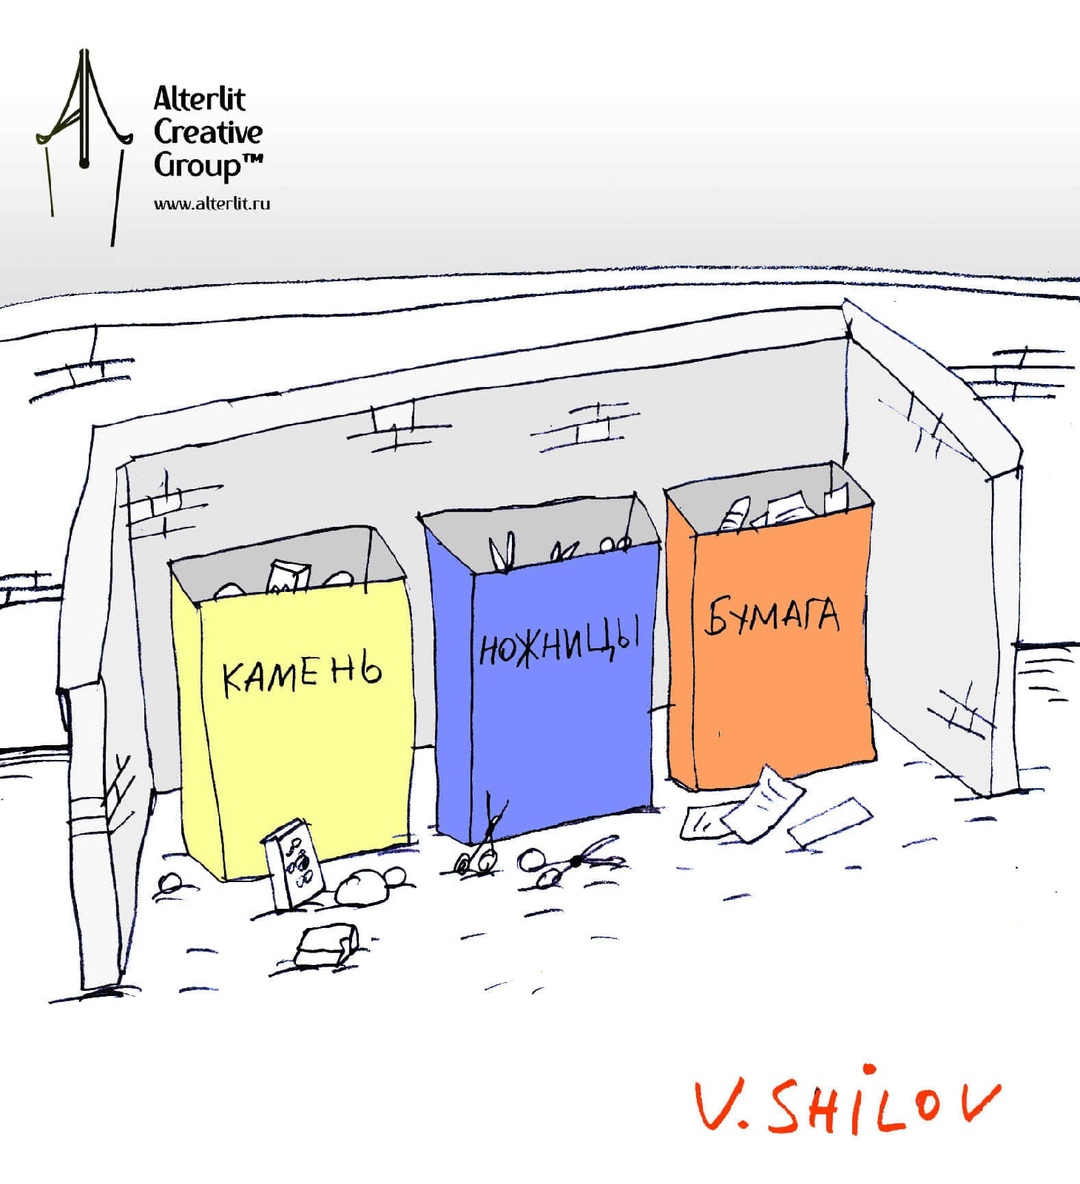 Alterlit
Creative
Group™
www.alterlit.ru
КАМЕНЬ
НОЖНИЦЫ
БУМАГА
V. SHiLOV